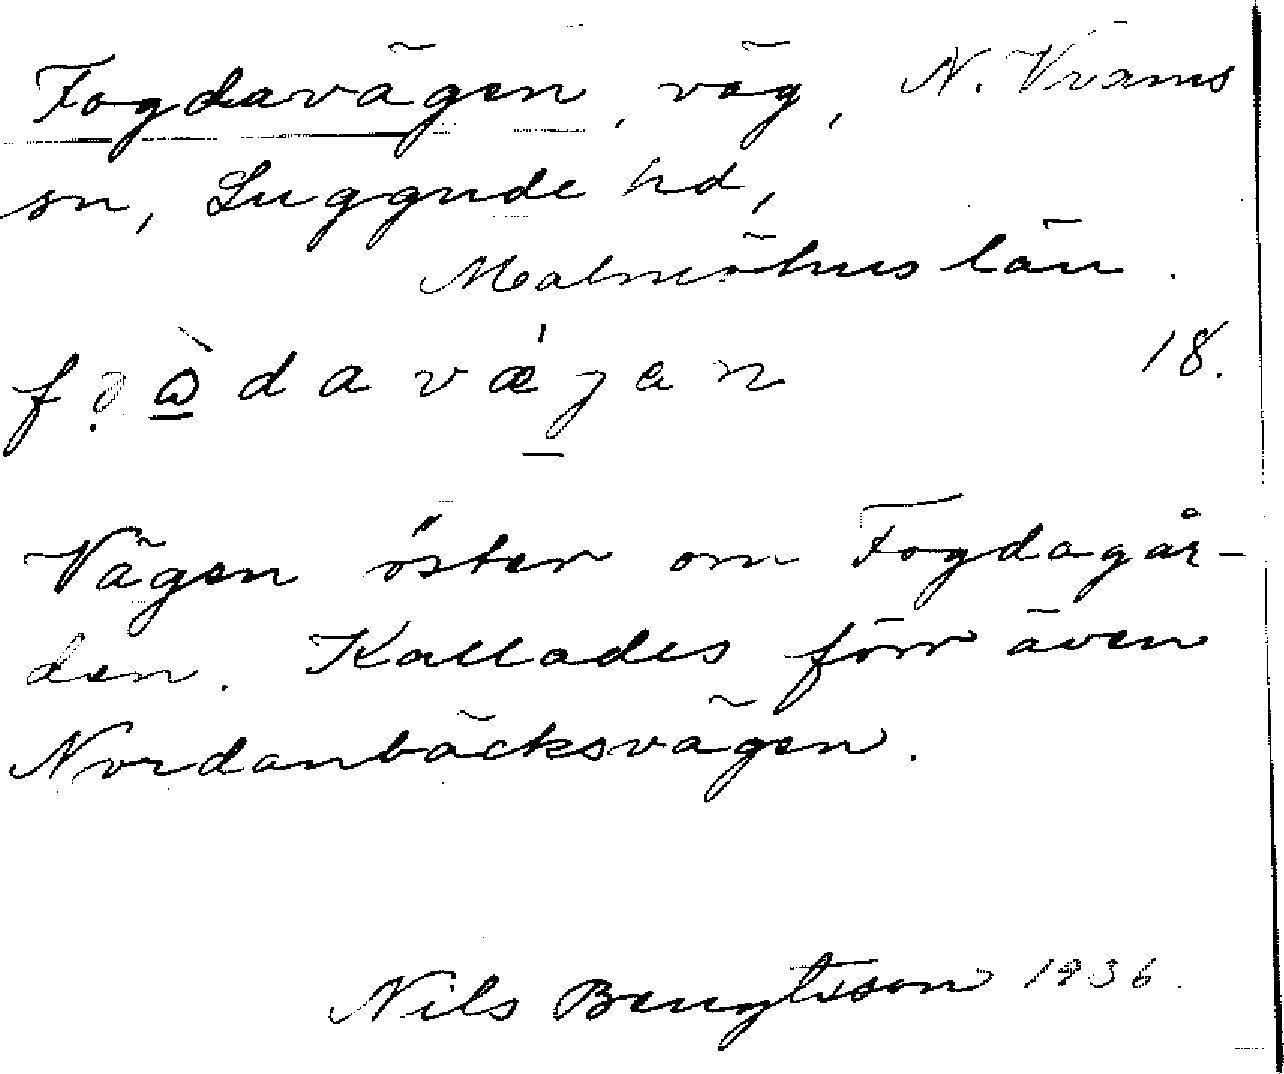 Fogdavägen, väg, N. Vrams
sn, Luggude hd,
Malmöhus län.
18.
Vägen öster om Fogdagår-
den. Kallades förr även
Nordanbäcksvägen.
Nils Bengtsson 1936.